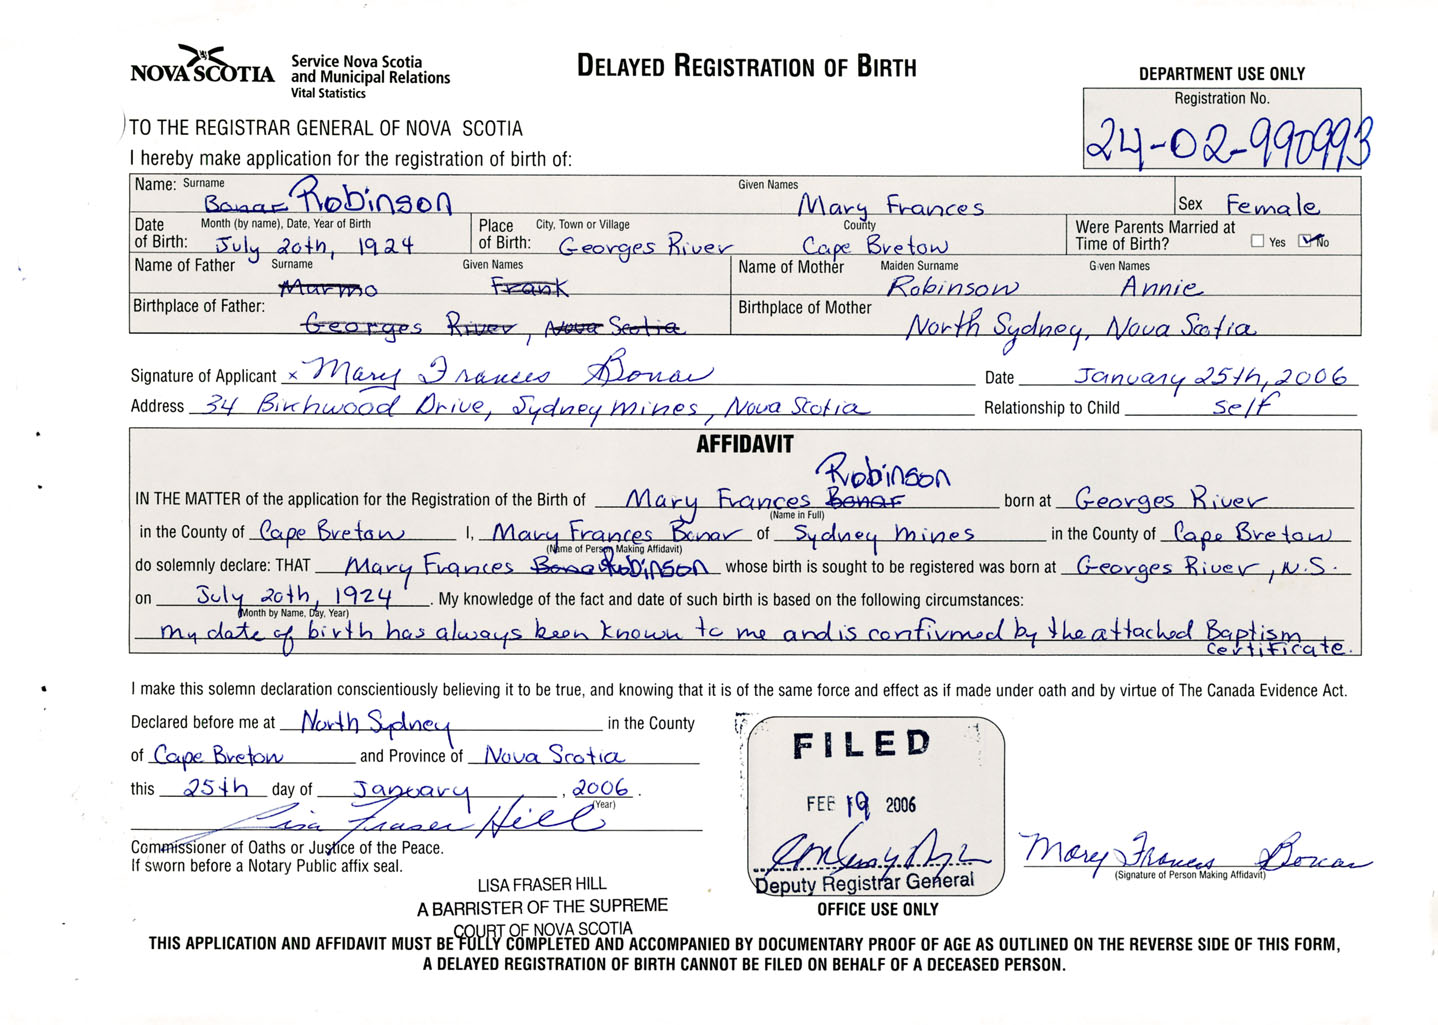 NOVA SCOTIA
Service Nova Scotia
and Municipal Relations
Vital Statistics
DELAYED REGISTRATION OF BIRTH
DEPARTMENT USE ONLY
Registration No.
24-02-990993
TO THE REGISTRAR GENERAL OF NOVA SCOTIA
I hereby make application for the registration of birth of:
Name: Surname Given Names
Bonar Robinson Mary Frances Sex Female
Date of Birth: Month (by name), Date, Year of Birth July 20th, 1924
Place of Birth: City, Town or Village Georges River County Cape Breton
Were Parents Married at Time of Birth? Yes No
Name of Father Surname Marmo Given Names Frank
Name of Mother Maiden Surname Robinson Given Names Annie
Birthplace of Father: Georges River, Nova Scotia
Birthplace of Mother North Sydney, Nova Scotia
Signature of Applicant x Mary Frances Bonar Date January 25th, 2006
Address 34 Birchwood Drive, Sydney Mines, Nova Scotia Relationship to Child self
AFFIDAVIT
Robinson
IN THE MATTER of the application for the Registration of the Birth of Mary Frances Bonar born at Georges River
(Name in Full)
in the County of Cape Breton I, Mary Frances Bonar of Sydney Mines in the County of Cape Breton
(Name of Person Making Affidavit)
do solemnly declare: THAT Mary Frances Bonar Robinson whose birth is sought to be registered was born at Georges River, N.S.
on July 20th, 1924. My knowledge of the fact and date of such birth is based on the following circumstances:
(Month by Name, Day, Year)
My date of birth has always been known to me and is confirmed by the attached Baptism
Certificate.
I make this solemn declaration conscientiously believing it to be true, and knowing that it is of the same force and effect as if made under oath and by virtue of The Canada Evidence Act.
Declared before me at North Sydney in the County
of Cape Breton and Province of Nova Scotia
this 25th day of January, 2006.
(Year)
Lisa Fraser Hill
Commissioner of Oaths or Justice of the Peace.
If sworn before a Notary Public affix seal.
LISA FRASER HILL
A BARRISTER OF THE SUPREME
COURT OF NOVA SCOTIA
FILED
FEB 19 2006
Deputy Registrar General
OFFICE USE ONLY
Mary Frances Bonar
(Signature of Person Making Affidavit)
THIS APPLICATION AND AFFIDAVIT MUST BE FULLY COMPLETED AND ACCOMPANIED BY DOCUMENTARY PROOF OF AGE AS OUTLINED ON THE REVERSE SIDE OF THIS FORM,
A DELAYED REGISTRATION OF BIRTH CANNOT BE FILED ON BEHALF OF A DECEASED PERSON.